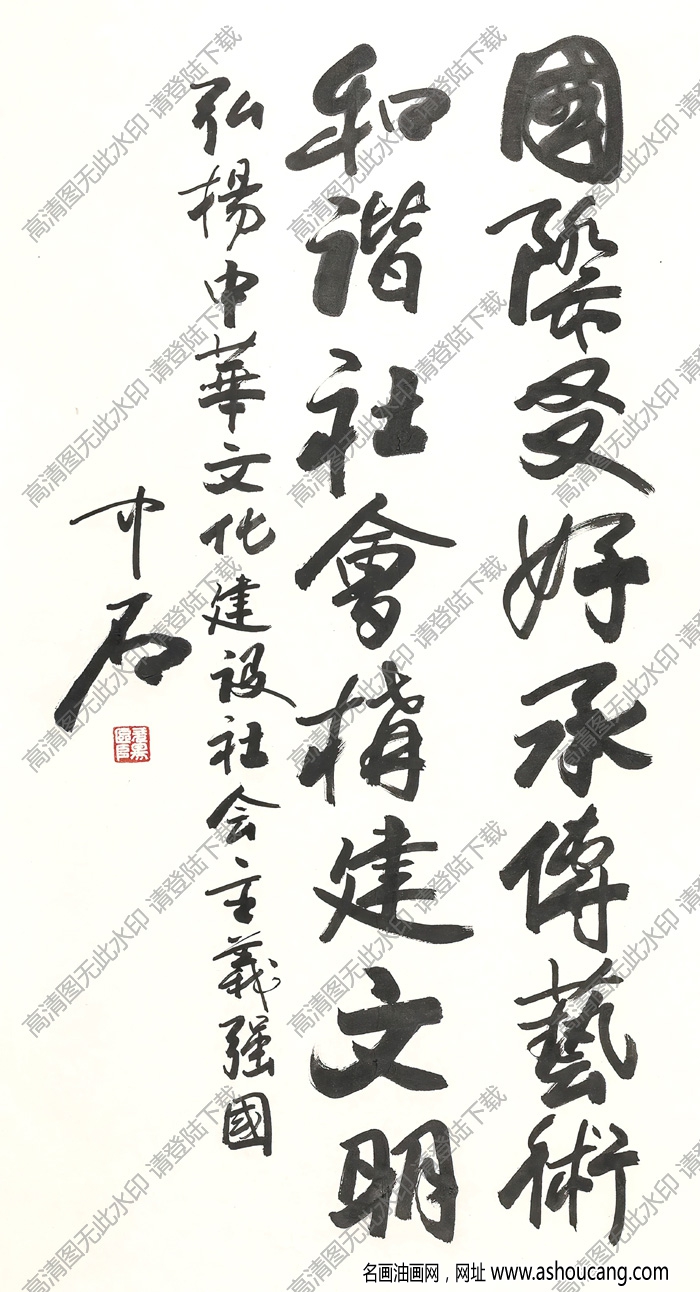 國際友好承傳藝術
和谐社會構建文明
弘楊中華文化建设社会主義强國
中石
高清图无此水印 请登陆下载
名画油画网，网址 www.ashoucang.com